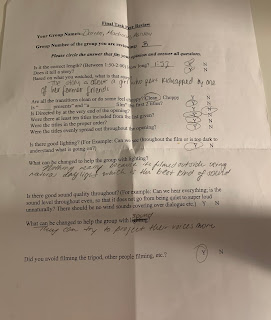 Final Task Peer Review
Your Group Names:
Group Number of the group you are reviewing: B
Please circle the answer that the you and answer all questions.
Is it the correct length? (Between 1:50-2:00) how long? 1:22 Y N
Does it tell a story?
Based on what you watched, what is that story?
The story is about a girl who gets kidnapped by one
of her former friends
Are all the transitions clean or do some feel Clear Choppy
Is " presents" and "a film" in first 7 films? Y N
Is Directed by at the very end of the opening? Y N
Were there at least ten titles included from the list given? Y N
Were the titles in the proper order? Y N
Were the titles evenly spread out throughout the opening? Y N
Is there good lighting? (For Example: Can we see throughout the film or is too dark to
understand what is going on?) Y N
What can be changed to help the group with lighting?
Nothing really because he filmed outside using
natural daylight which is the best kind of sound
Is there good sound quality throughout? (For example: Can we hear everything, is the
sound level throughout even, so that it does not go from being quiet to super loud
intentionally? There should be no wind sounds covering over dialogue etc.) Y N
What can be changed to help the group with sound
They can try to project their voices more
Did you avoid filming the tripod, other people filming, etc.? Y N